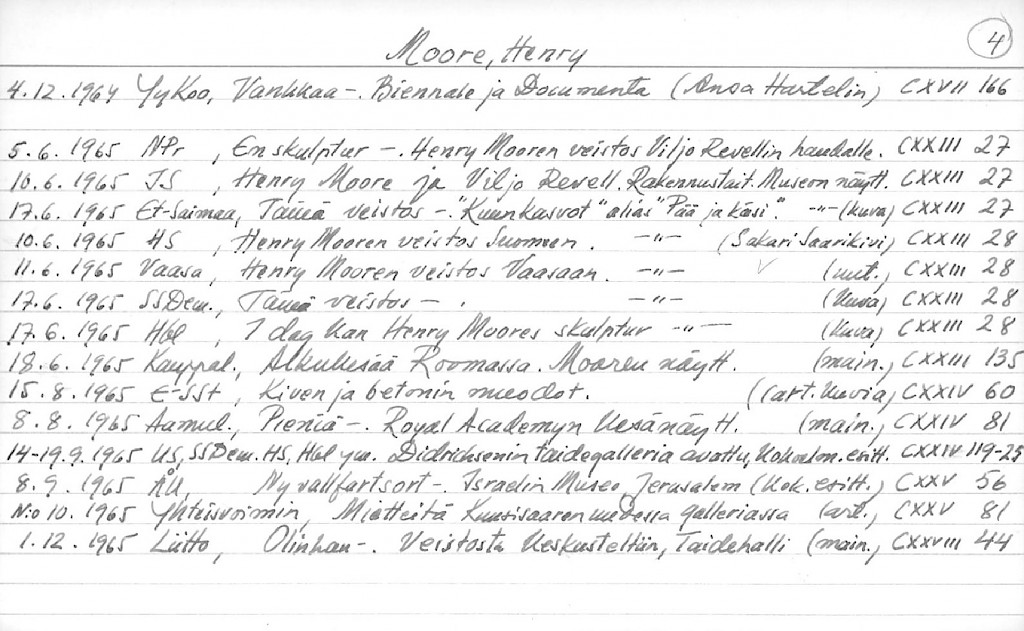 Moore, Henry
4
4.12.1964 YyKoo, Vankkaa -. Biennale ja Documenta (Ansa Hartelin) CXVII 166
5.6. 1965 NPr , En skulptur -. Henry Mooren veistos Viljo Revellin haudalle. CXXIII 27
10.6. 1965 IS , Henry Moore ja Viljo Revell. Rakennustait. Museon näytt. CXXIII 27
17.6. 1965 Et-Saimaa, Tämä veistos -. "Kuunkasvot" alias "Pää ja käsi". -"- (kuva) CXXIII 27
10.6. 1965 HS , Henry Mooren veistos Suomeen. -"- (Sakari Saarikivi) CXXIII 28
11.6. 1965 Vaasa, Henry Mooren veistos Vaasaan. -"- (uut.) CXXIII 28
17.6. 1965 SSDem., Tämä veistos -. -"- (kuva) CXXIII 28
17.6. 1965 Hbl , I dag kan Henry Moores skulptur -"- (kuva) CXXIII 28
18.6. 1965 Kauppal., Alkukesää Roomassa. Mooren näytt. (main.) CXXIII 135
15.8. 1965 E-SSt , Kiven ja betonin muodot. ((art. kuvia) CXXIV 60
8.8. 1965 Aamul., Pieniä -. Royal Academyn kesänäytt. (main.) CXXIV 81
14-19.9.1965 US, SSDem. HS, Hbl ym. Didrichsenin taidegalleria avattu, kokoelm. esitt. CXXIV 119-25
8.9. 1965 ÅU, Ny vallfartsort -. Israelin Museo Jerusalem (kok. esitt.) CXXV 56
N:o 10. 1965 Yhteisvoimin, Mietteitä Kuusisaaren uudessa galleriassa (art.) CXXV 81
1.12. 1965 Liitto, Olinhan -. Veistosta keskustellan, Taidehalli (main.) CXXVIII 44